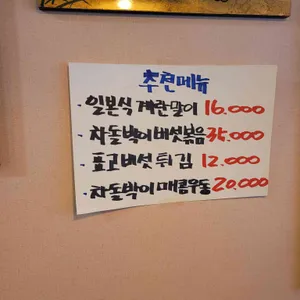 추천메뉴
· 일본식 계란말이 16.000
· 차돌박이버섯볶음 35.000
· 표고버섯 튀김 12.000
· 차돌박이매콤우동 20.000